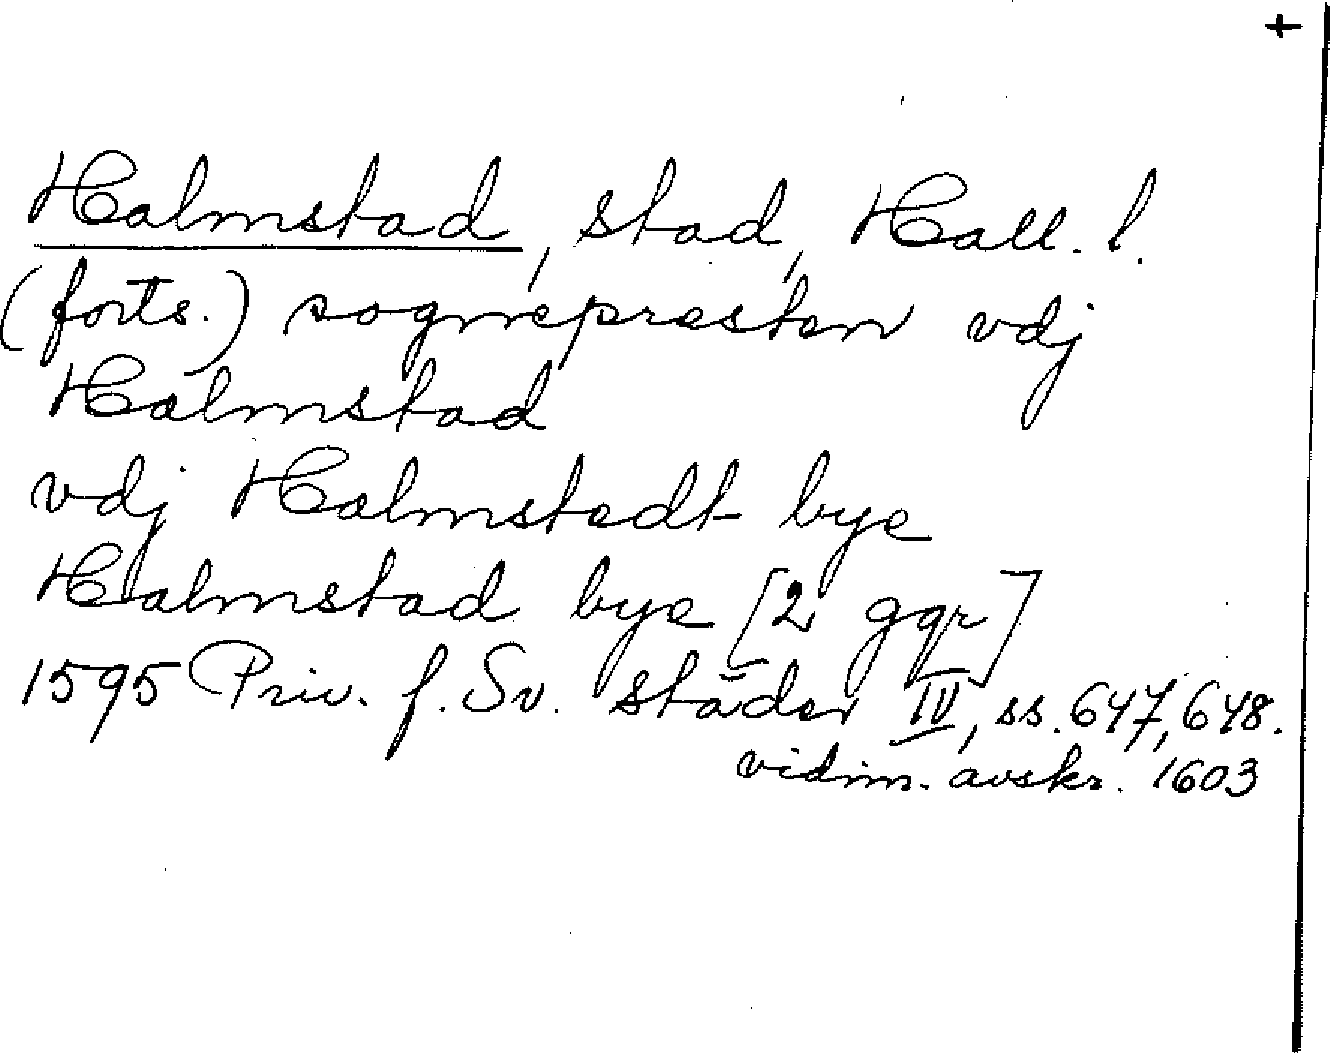 +
Halmstad, stad, Hall. l.
(forts.) sognepresten vdj
Halmstad
vdj Halmstedt bye
Halmstad bye [2 ggr]
1595 Priv. f. Sv. städer IV, ss. 647, 648.
vidim. avskr. 1603